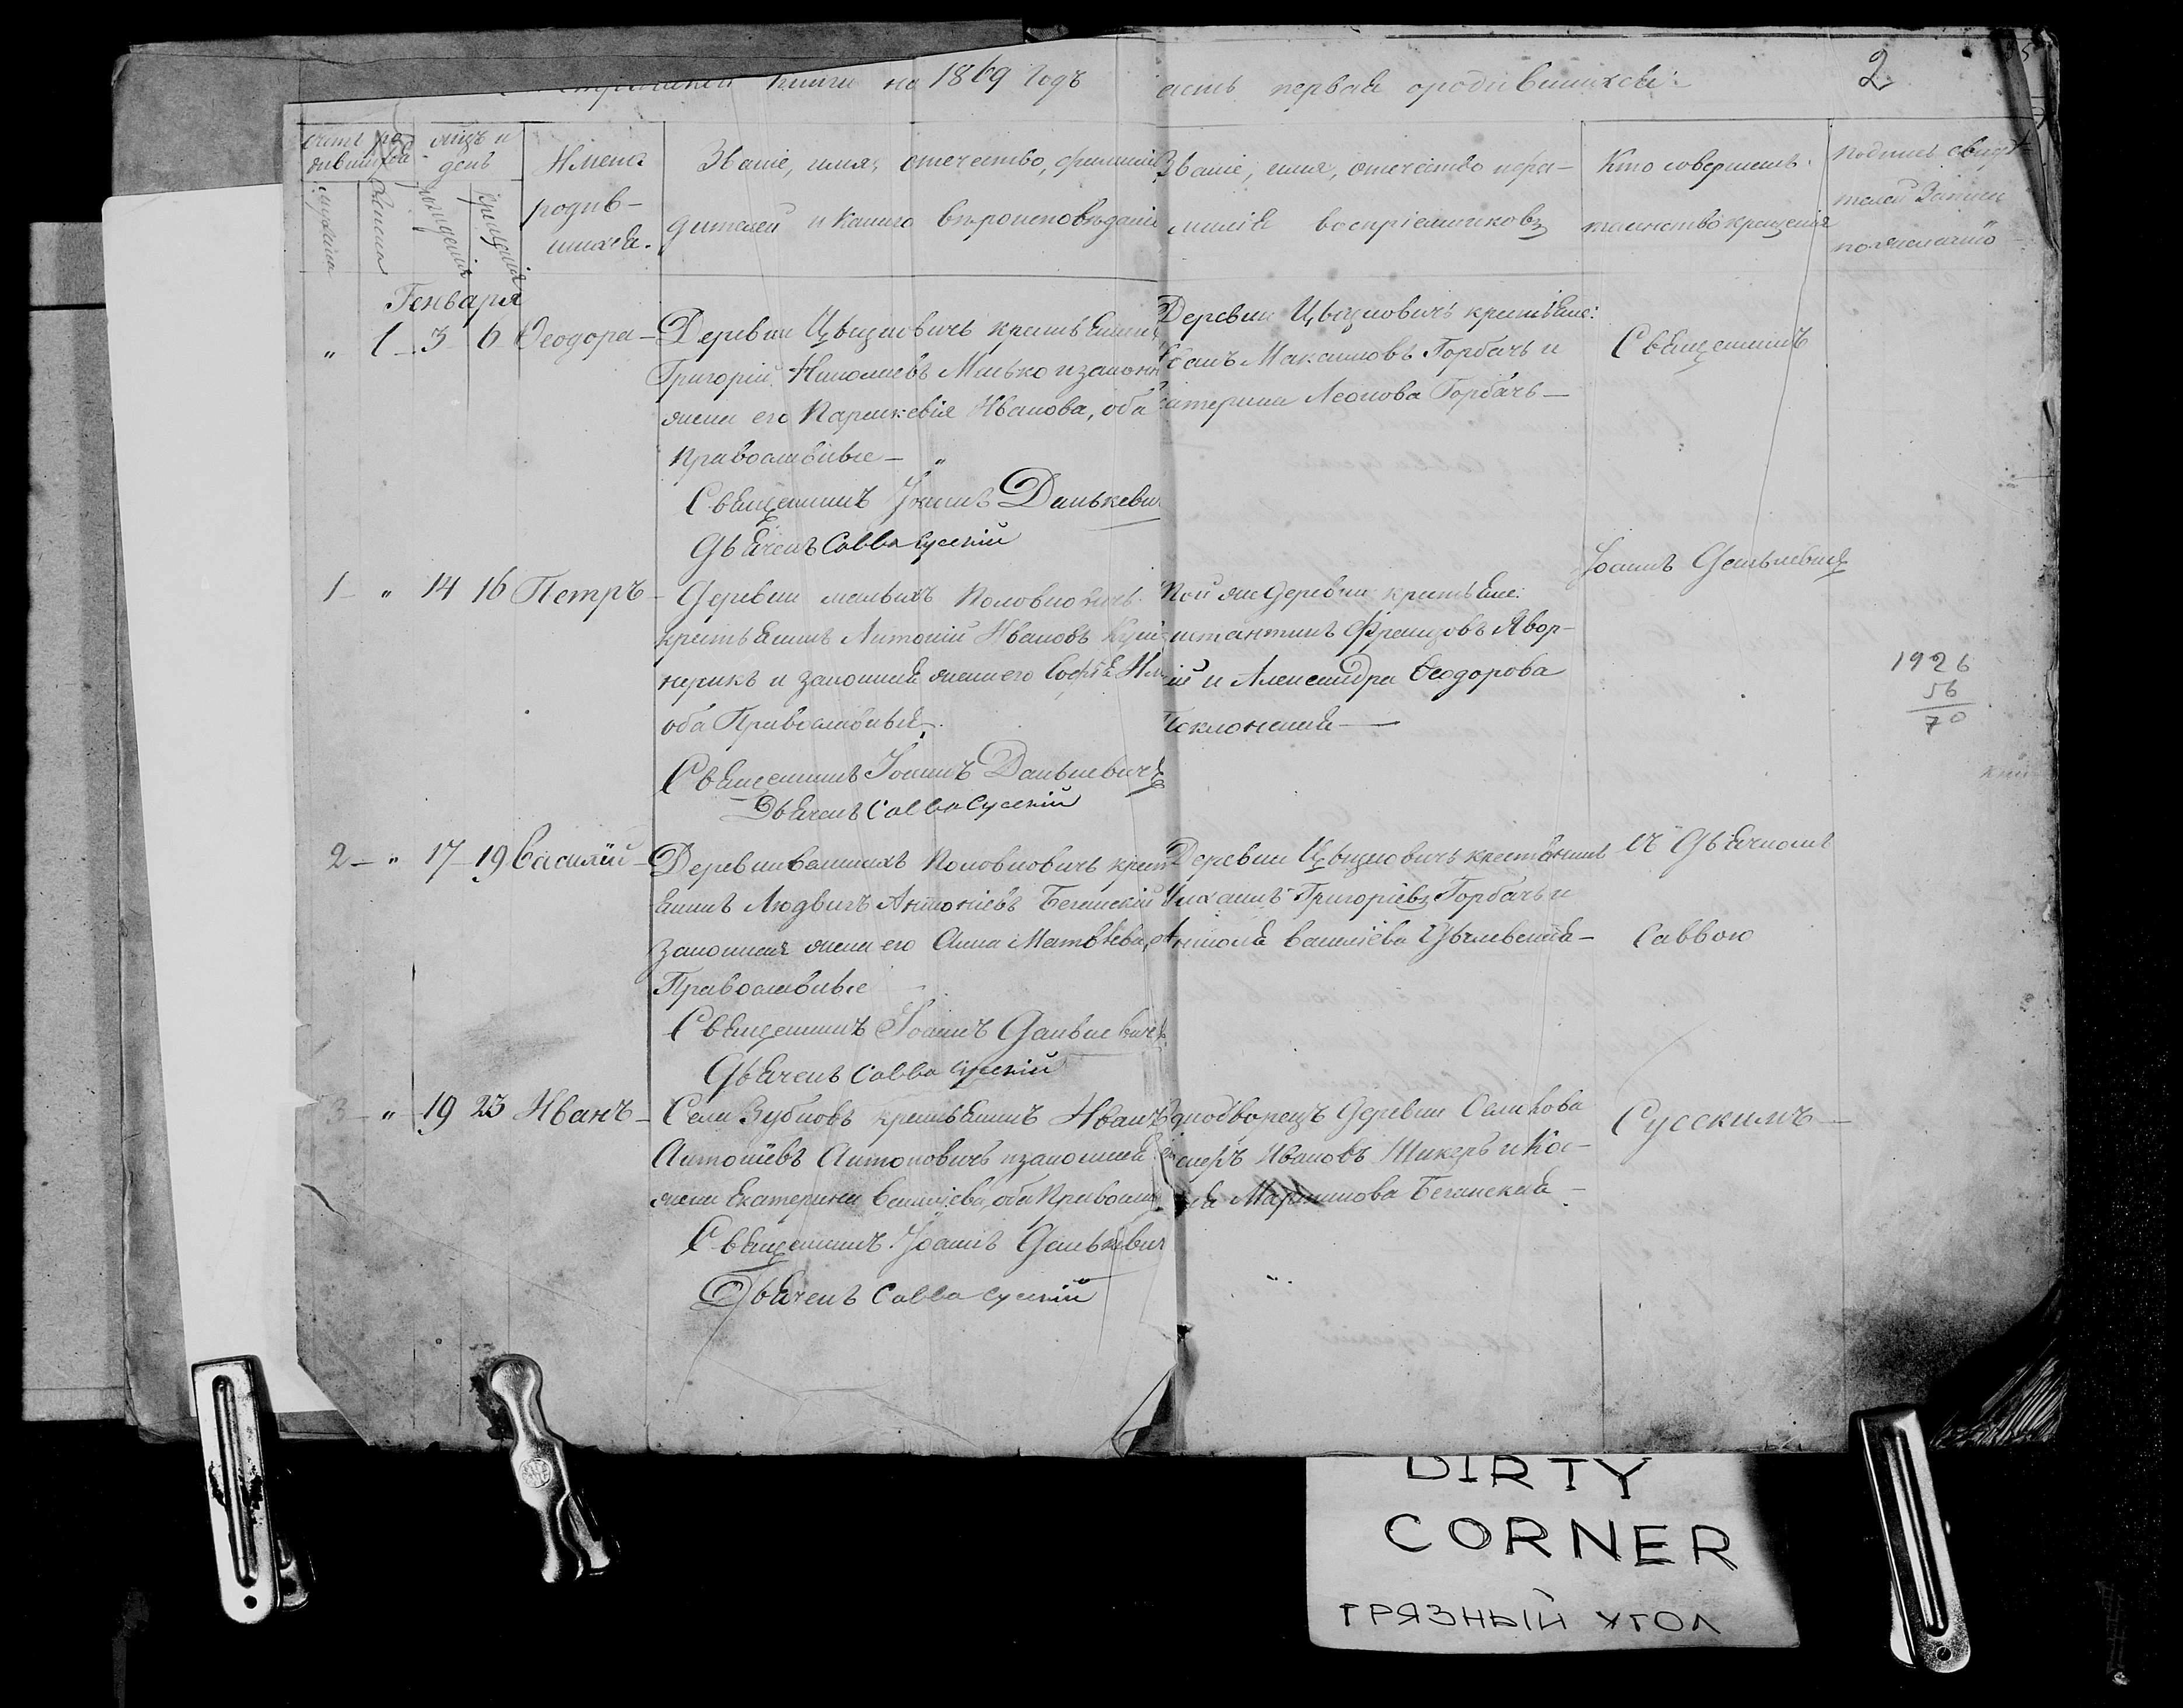 книги на 1869 Годъ
асть первая о родившихся:
2
мѣсяцъ и
день
Имена
родив-
шихся.
Званіе, имя, отечество, фамилія
дителей и какого вѣроисповѣданія
Званіе, имя, отечество и фа-
милія воспріемниковъ
Кто совершалъ
таинство крещенія
Подпись свидѣ-
телей записи
по желанію
Генваря
" 1 3 6 Ѳеодора
Деревни Цвѣцновичъ крестьянинъ
Григорій Николаевъ Милько и законн
жена его Параскевія Иванова, оба
Православные
Священникъ Іоаннъ Данькеви
Дьячекъ Савва Сусскій
Деревни Цвѣцновичъ крестьяне:
Максимовъ Горбачъ и
катерина Леонова Горбачъ
Священникъ
Іоаннъ Данькевичъ
1 " 14 16 Петръ
Деревни малыхъ Половновичъ
крестьянинъ Антоній Ивановъ
и законная жена его Софія
оба Православныя
Священникъ Іоаннъ Данькевичъ
Дьячекъ Савва Сусскій
Той же деревни крестьяне:
стантинъ Францовъ Явор-
ій и Александра Ѳеодорова
1926
56
70
2 " 17 19 Василій
Деревни великихъ Половновичъ крест
янинъ Людвигъ Антоніевъ Беганскій
законная жена его Анна Матвѣева, об
Православные
Священникъ Іоаннъ Данькевичъ
Дьячекъ Савва Сусскій
Деревни Цвѣцновичъ крестьянинъ
Михаилъ Григоріевъ Горбачъ и
Василіева
съ Дьячкомъ
Саввою
3 " 19 23 Иванъ
Села Зубковъ крестьянинъ Иванъ
Антоніевъ Антоновичъ и законная
жена Екатерина Василіева, оба Правосла
Священникъ Іоаннъ Данькевич
Дьячекъ Савва Сусскій
однодворецъ деревни
Ивановъ и
Мартинова Беганская
Сусскимъ
DIRTY
CORNER
ГРЯЗНЫЙ УГОЛ